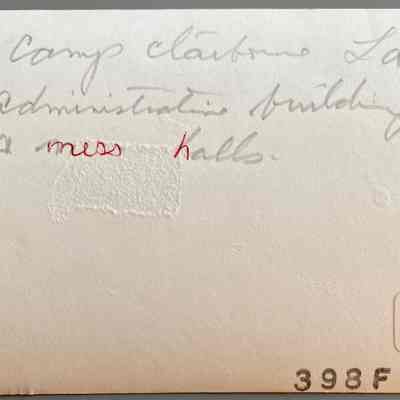 Camp Claiborne La
administration building
mess halls.
398F